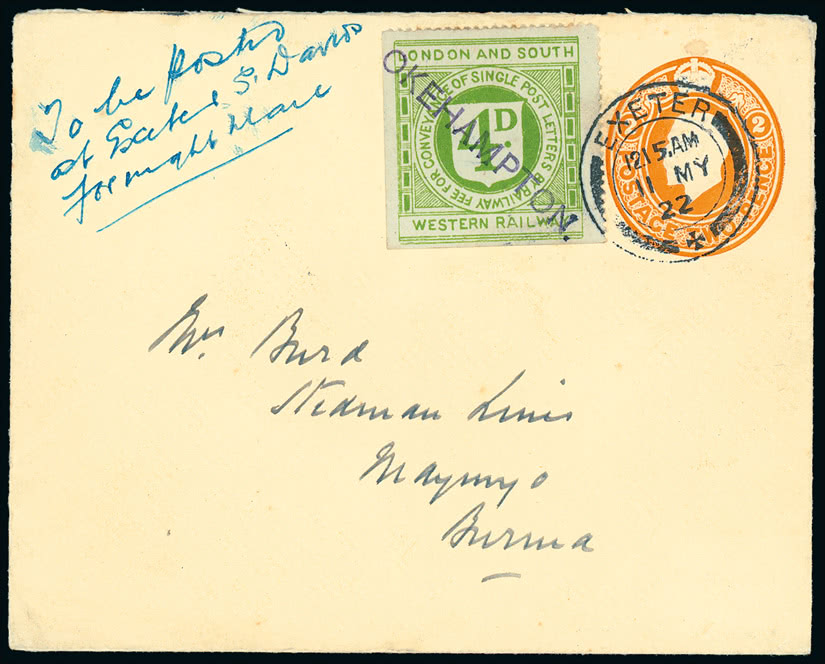 To be posted
at Exeter S. Davids
for night Mail
LONDON AND SOUTH
RAILWAY FEE FOR CONVEYANCE OF SINGLE POST LETTERS BY
4D
WESTERN RAILWAY
OKEHAMPTON.
EXETER
12.15.AM
11 MY
22
POSTAGE TWO PENCE
2
Mrs Burd
Stedman Lines
Maymyo
Burma